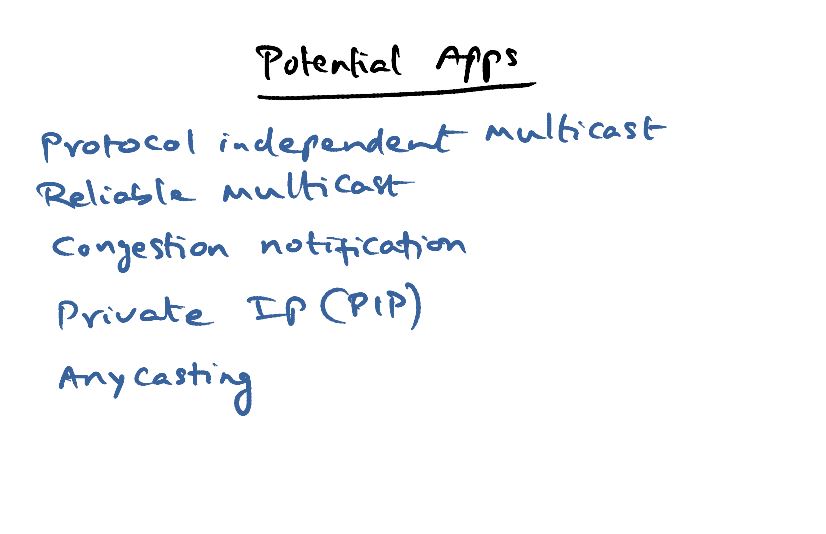 Potential Apps
Protocol independent multicast
Reliable multicast
Congestion notification
Private IP (PIP)
Anycasting